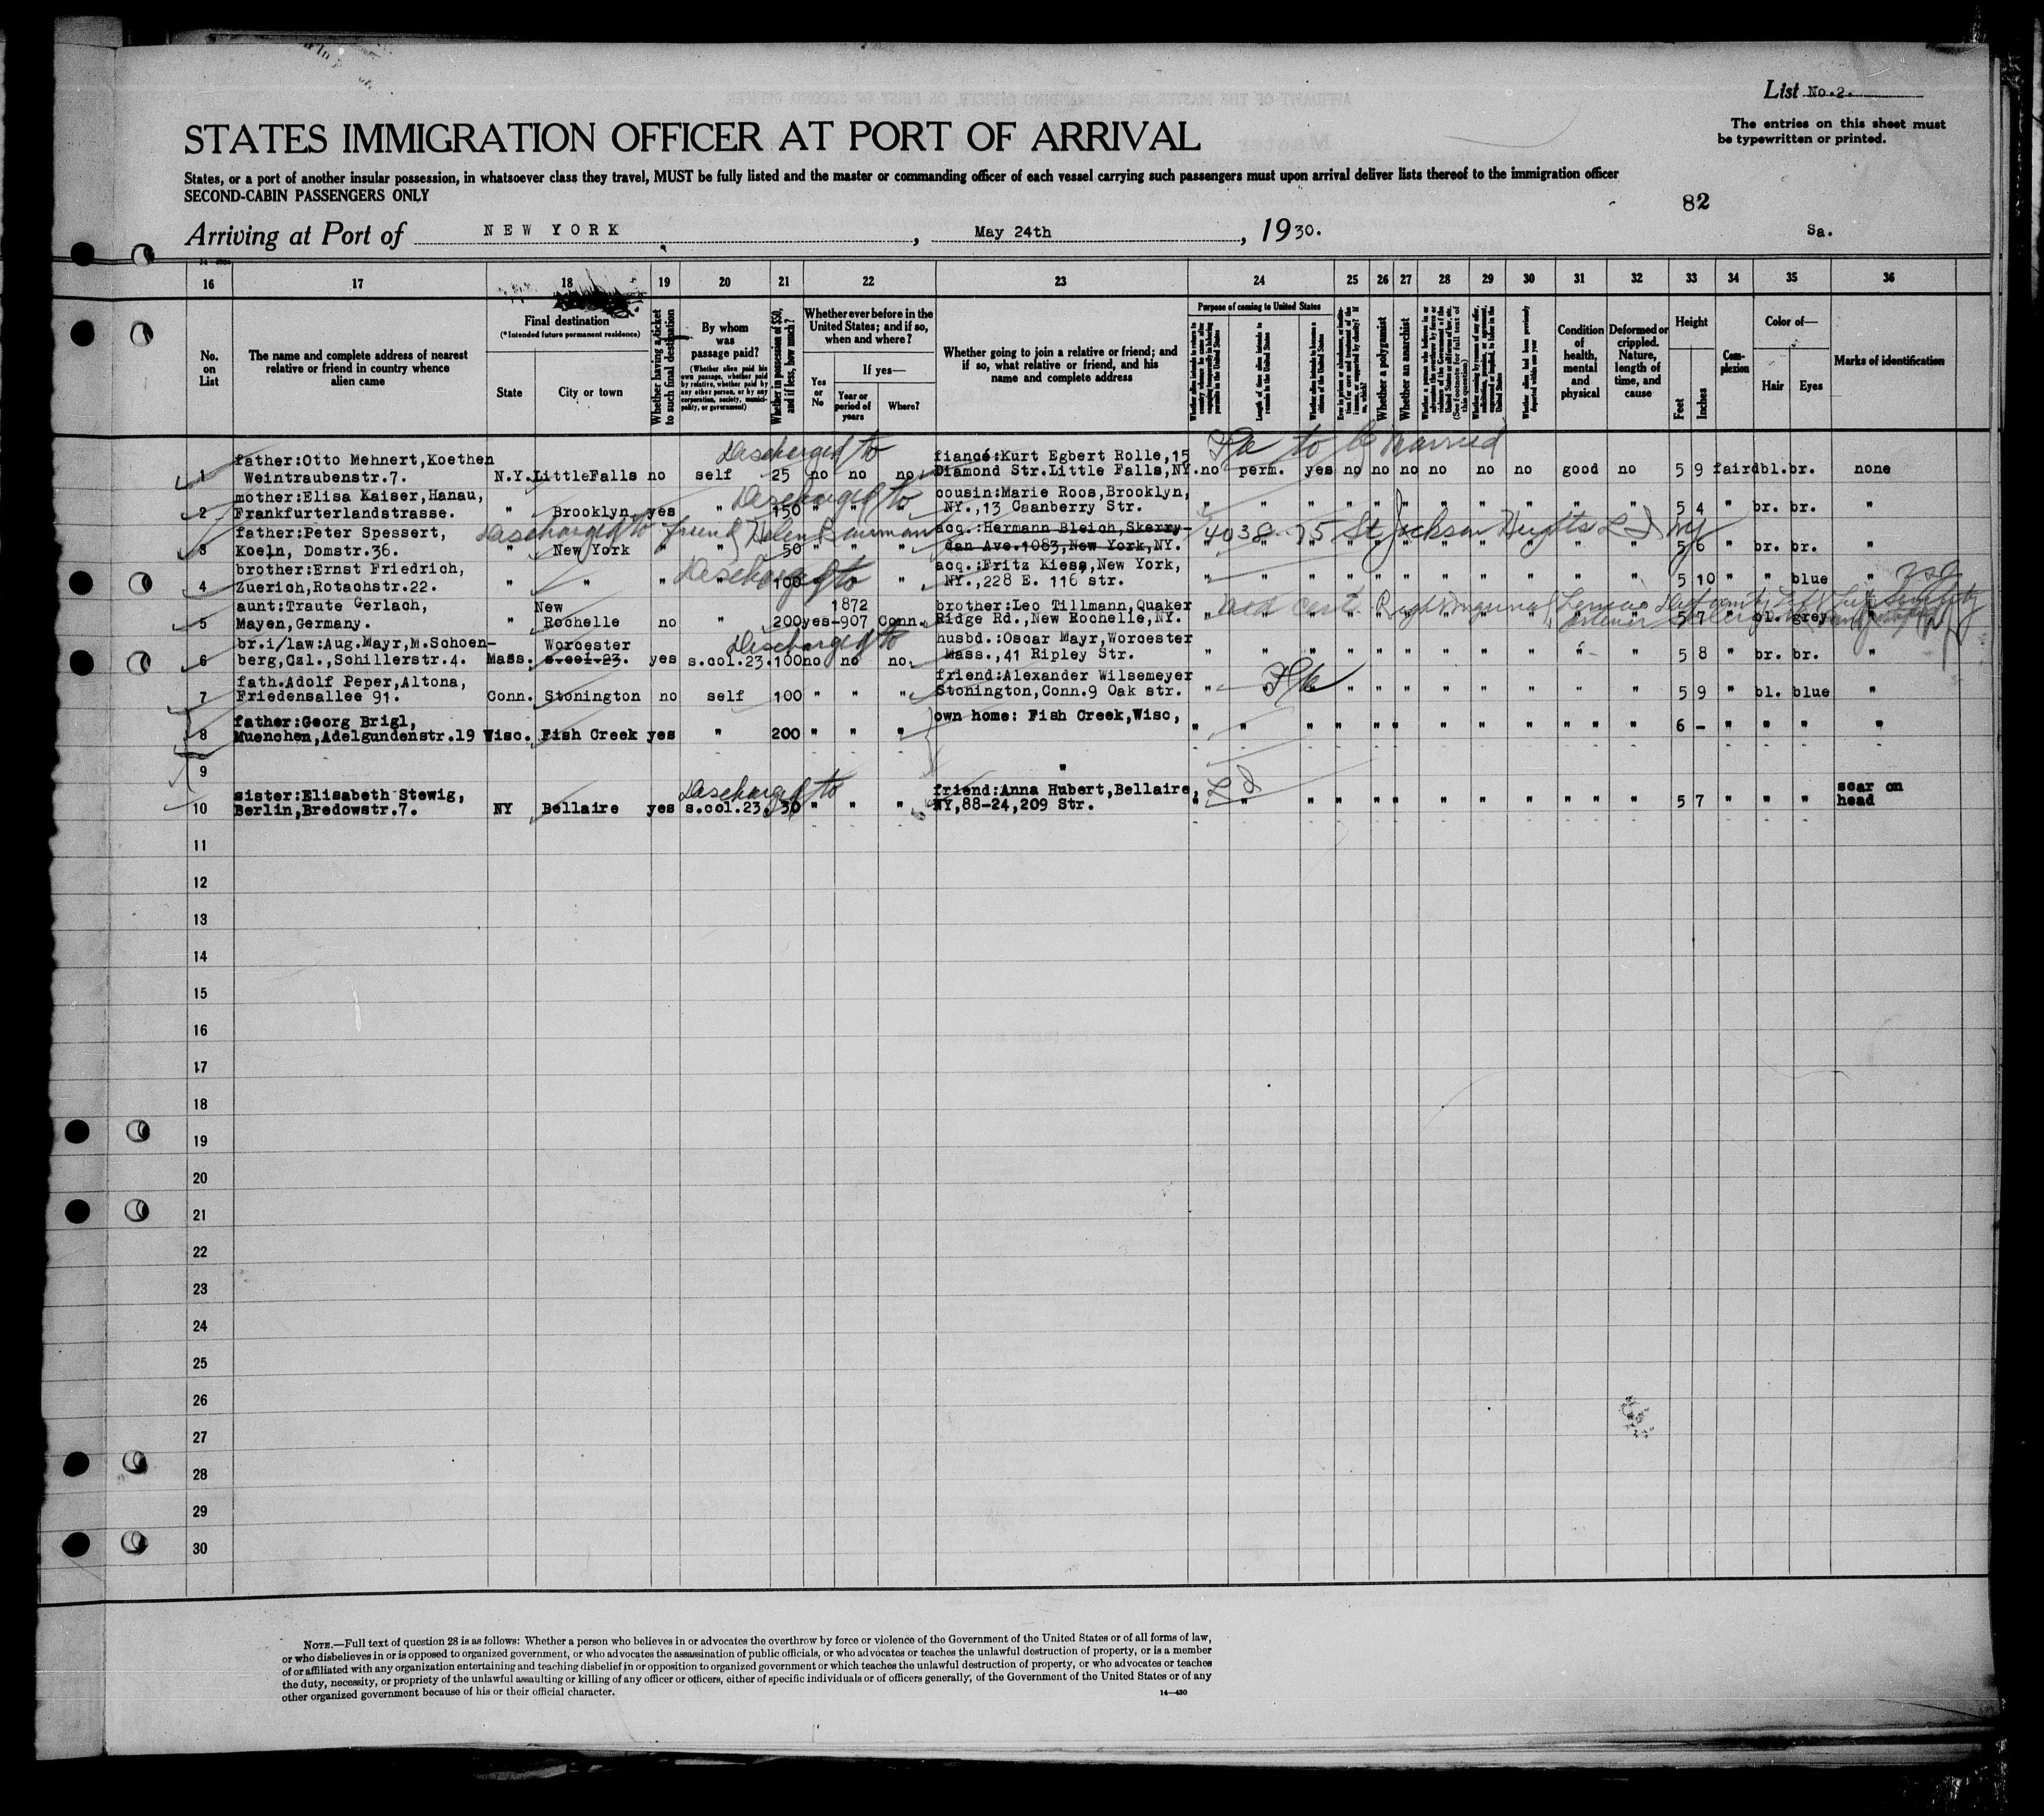 List No.2.
The entries on this sheet must
be typewritten or printed.
STATES IMMIGRATION OFFICER AT PORT OF ARRIVAL
States, or a port of another insular possession, in whatsoever class they travel, MUST be fully listed and the master or commanding officer of each vessel carrying such passengers must upon arrival deliver lists thereof to the immigration officer
SECOND-CABIN PASSENGERS ONLY
82
Arriving at Port of NEW YORK, May 24th, 1930.
Sa.
16 17 18 19 20 21 22 23 24 25 26 27 28 29 30 31 32 33 34 35 36
No. on List
The name and complete address of nearest relative or friend in country whence alien came
Final destination
(*Intended future permanent residence)
State
City or town
Whether having a ticket to such final destination
By whom was passage paid?
(Whether alien paid his own passage, whether paid by relative, whether paid by any other person, or by any corporation, society, municipality, or government)
Whether in possession of $50, and if less, how much?
Whether ever before in the United States; and if so, when and where?
Yes or No
If yes—
Year or period of years
Where?
Whether going to join a relative or friend; and if so, what relative or friend, and his name and complete address
Purpose of coming to United States
Length of time alien intends to remain in the United States
Whether alien intends to become a citizen of the United States
Whether a polygamist
Whether an anarchist
Whether alien had been previously deported within one year
Condition of health, mental and physical
Deformed or crippled. Nature, length of time, and cause
Height
Feet
Inches
Complexion
Color of—
Hair
Eyes
Marks of identification
Discharged to
to be married
father:Otto Mehnert,Koethen fiancé:Kurt Egbert Rolle,15
1 Weintraubenstr.7. N.Y. LittleFalls no self 25 no no no Diamond Str.Little Falls,NY. no perm. yes no no no no no no good no 5 9 fair dbl. br. none
Discharged to
mother:Elisa Kaiser,Hanau, cousin:Marie Roos,Brooklyn,
2 Frankfurterlandstrasse. " Brooklyn yes " 150 " " " NY.,13 Caanberry Str. " " " " " " " " " " " 5 4 " br. br. "
Discharged to friend Helen Baurmann 4038-75 St Jackson Heights L I NY
father:Peter Spessert, acq.:Hermann Bleich,Skerry-
3 Koeln, Domstr.36. " New York " " 50 " " " dan Ave.1083,New York,NY. " " " " " " " " " " " 5 6 " br. br. "
Discharged to
brother:Ernst Friedrich, acq.:Fritz Kiess,New York,
4 Zuerich,Rotachstr.22. " " " " 100 " " " NY.,228 E. 116 str. " " " " " " " " " " " 5 10 " " blue "
aunt:Traute Gerlach, New 1872 brother:Leo Tillmann,Quaker
5 Mayen,Germany. " Rochelle no " 200 yes -907 Conn. Ridge Rd.,New Rochelle,NY. " " " " " " " " " " " 5 7 " bl. grey "
Med cert. Right inguinal
Discharged to
br.i/law:Aug.Mayr,M.Schoen- Worcester husbd.:Oscar Mayr,Worcester
6 berg,Czl.,Schillerstr.4. Mass. s.col.23. yes s.col.23. 100 no no no Mass.,41 Ripley Str. " " " " " " " " " " " 5 8 " br. br. "
fath.Adolf Peper,Altona, friend:Alexander Wilsemeyer
7 Friedensallee 91. Conn. Stonington no self 100 " " " Stonington,Conn.9 Oak str. " " " " " " " " " " 5 9 " bl. blue "
father:Georg Brigl, own home: Fish Creek,Wisc,
8 Muenchen,Adelgundenstr.19 Wisc. Fish Creek yes " 200 " " " " " " " " " " " " " " 6 - " " " "
9 "
Discharged to
sister:Elisabeth Stewig, friend:Anna Hubert,Bellaire, scar on
10 Berlin,Bredowstr.7. NY Bellaire yes s.col.23. 50 " " " NY,88-24,209 Str. " " " " " " " " " " " 5 7 " " " head
11
12
13
14
15
16
17
18
19
20
21
22
23
24
25
26
27
28
29
30
NOTE.—Full text of question 28 is as follows: Whether a person who believes in or advocates the overthrow by force or violence of the Government of the United States or of all forms of law,
or who disbelieves in or is opposed to organized government, or who advocates the assassination of public officials, or who advocates or teaches the unlawful destruction of property, or is a member
of or affiliated with any organization entertaining and teaching disbelief in or opposition to organized government or which teaches the unlawful destruction of property, or who advocates or teaches
the duty, necessity, or propriety of the unlawful assaulting or killing of any officer or officers, either of specific individuals or of officers generally, of the Government of the United States or of any
other organized government because of his or their official character.
14—430